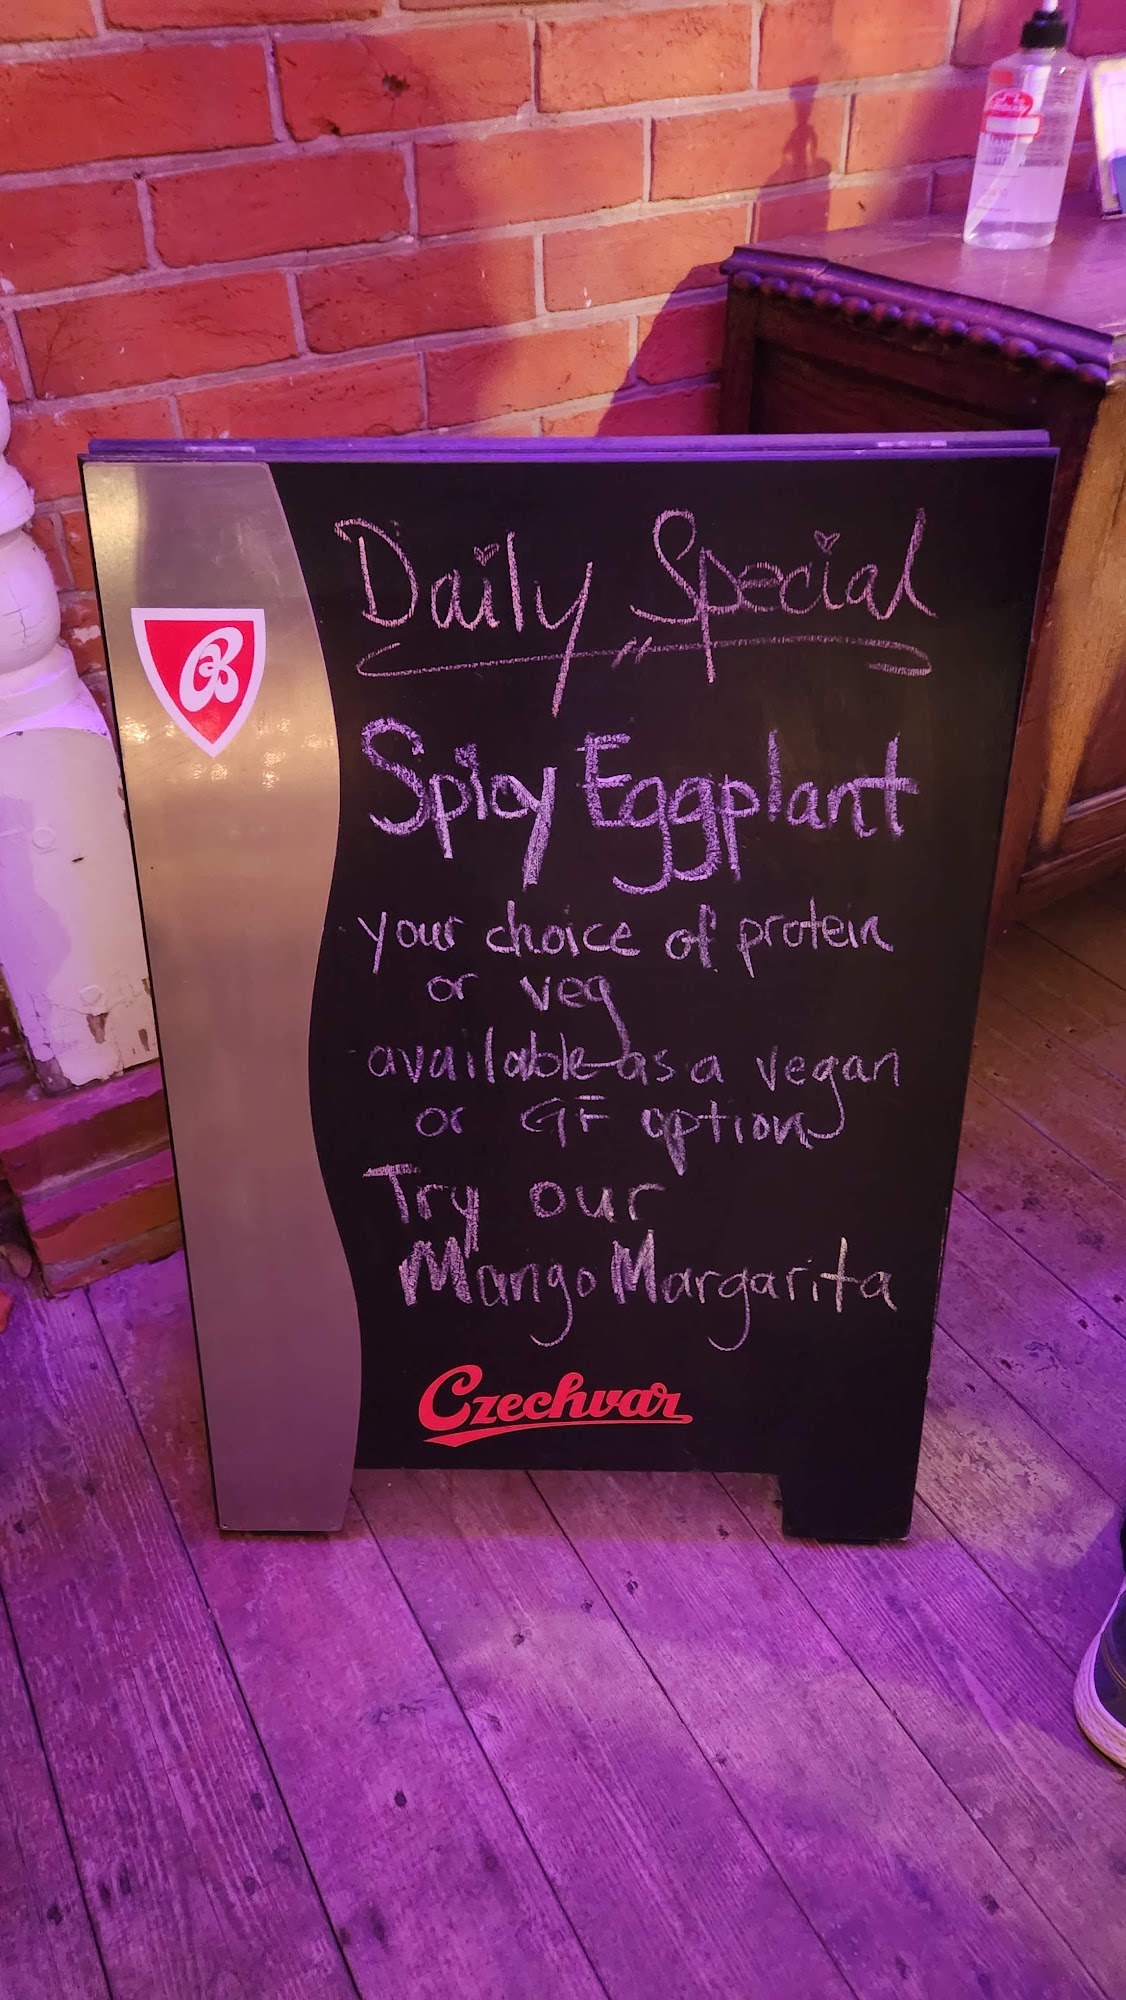 Daily Special
Spicy Eggplant
your choice of protein
or veg
available as a vegan
or GF option
Try our
Mango Margarita
Czechvar
B